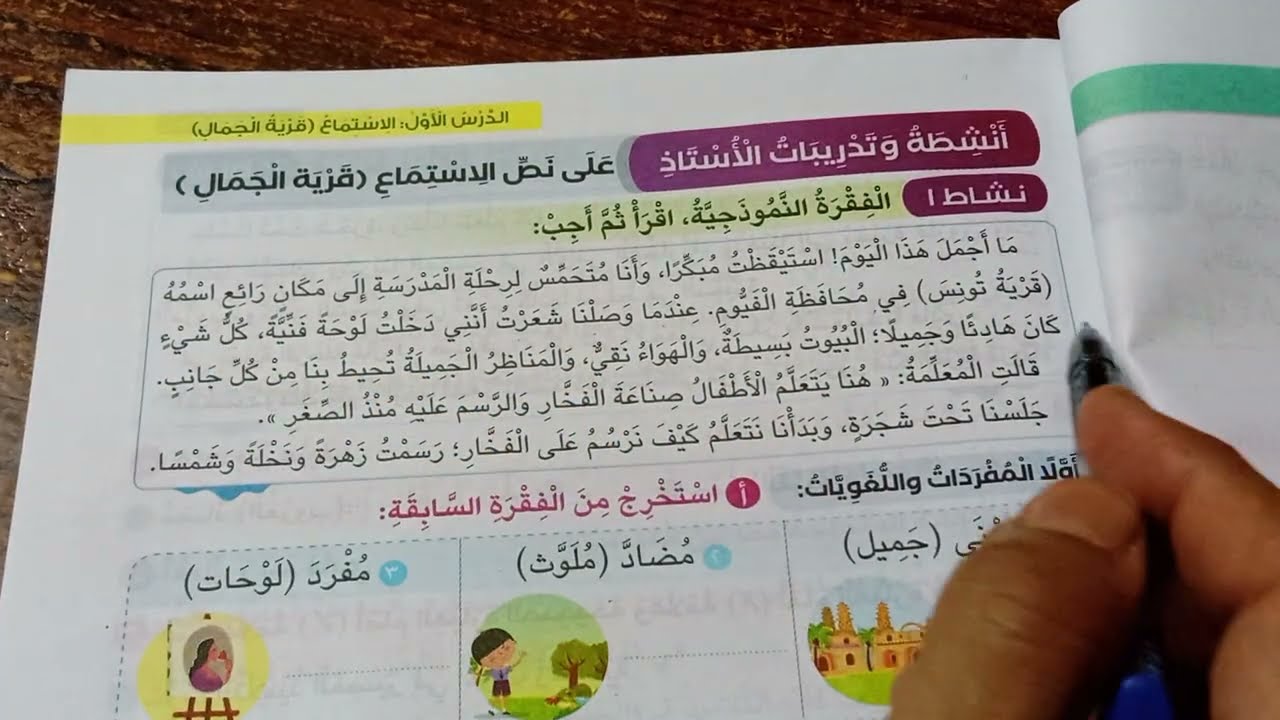 الدَّرْسُ الْأَوَّلُ: الِاسْتِمَاعُ (قَرْيَةُ الْجَمَالِ)
أَنْشِطَةُ وَتَدْرِيبَاتُ الْأُسْتَاذِ عَلَى نَصِّ الِاسْتِمَاعِ (قَرْيَةِ الْجَمَالِ)
نشاط ١ الْفِقْرَةُ النَّمُوذَجِيَّةُ، اقْرَأْ ثُمَّ أَجِبْ:
مَا أَجْمَلَ هَذَا الْيَوْمَ! اسْتَيْقَظْتُ مُبَكِّرًا، وَأَنَا مُتَحَمِّسٌ لِرِحْلَةِ الْمَدْرَسَةِ إِلَى مَكَانٍ رَائِعٍ اسْمُهُ
(قَرْيَةُ تُونِسَ) فِي مُحَافَظَةِ الْفَيُّومِ. عِنْدَمَا وَصَلْنَا شَعَرْتُ أَنَّنِي دَخَلْتُ لَوْحَةً فَنِّيَّةً، كُلُّ شَيْءٍ
كَانَ هَادِئًا وَجَمِيلًا؛ الْبُيُوتُ بَسِيطَةٌ، وَالْهَوَاءُ نَقِيٌّ، وَالْمَنَاظِرُ الْجَمِيلَةُ تُحِيطُ بِنَا مِنْ كُلِّ جَانِبٍ.
قَالَتِ الْمُعَلِّمَةُ: « هُنَا يَتَعَلَّمُ الْأَطْفَالُ صِنَاعَةَ الْفَخَّارِ وَالرَّسْمَ عَلَيْهِ مُنْذُ الصِّغَرِ ».
جَلَسْنَا تَحْتَ شَجَرَةٍ، وَبَدَأْنَا نَتَعَلَّمُ كَيْفَ نَرْسُمُ عَلَى الْفَخَّارِ؛ رَسَمْتُ زَهْرَةً وَنَخْلَةً وَشَمْسًا.
أَوَّلًا الْمُفْرَدَاتُ واللُّغَوِيَّاتُ: أ اسْتَخْرِجْ مِنَ الْفِقْرَةِ السَّابِقَةِ:
(جَمِيل) ٢ مُضَادَّ (مُلَوَّث) ٣ مُفْرَدَ (لَوْحَات)